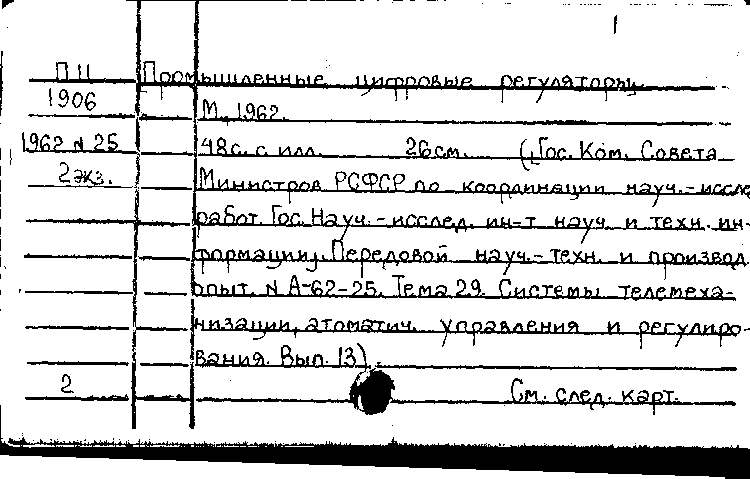 1
П 11 Промышленные цифровые регуляторы.
1906 М., 1962.
1962 N 25 48с. с илл. 26см. (Гос. Ком. Совета
2экз. Министров РСФСР по координации науч.-иссле
работ. Гос. Науч.-исслед. ин-т науч. и техн. ин-
формации). Передовой науч.-техн. и производ.
опыт. N А-62-25. Тема 29. Системы телемеха-
низации, атоматич. управления и регулиро-
вания. Вып. 13).
2 См. след. карт.